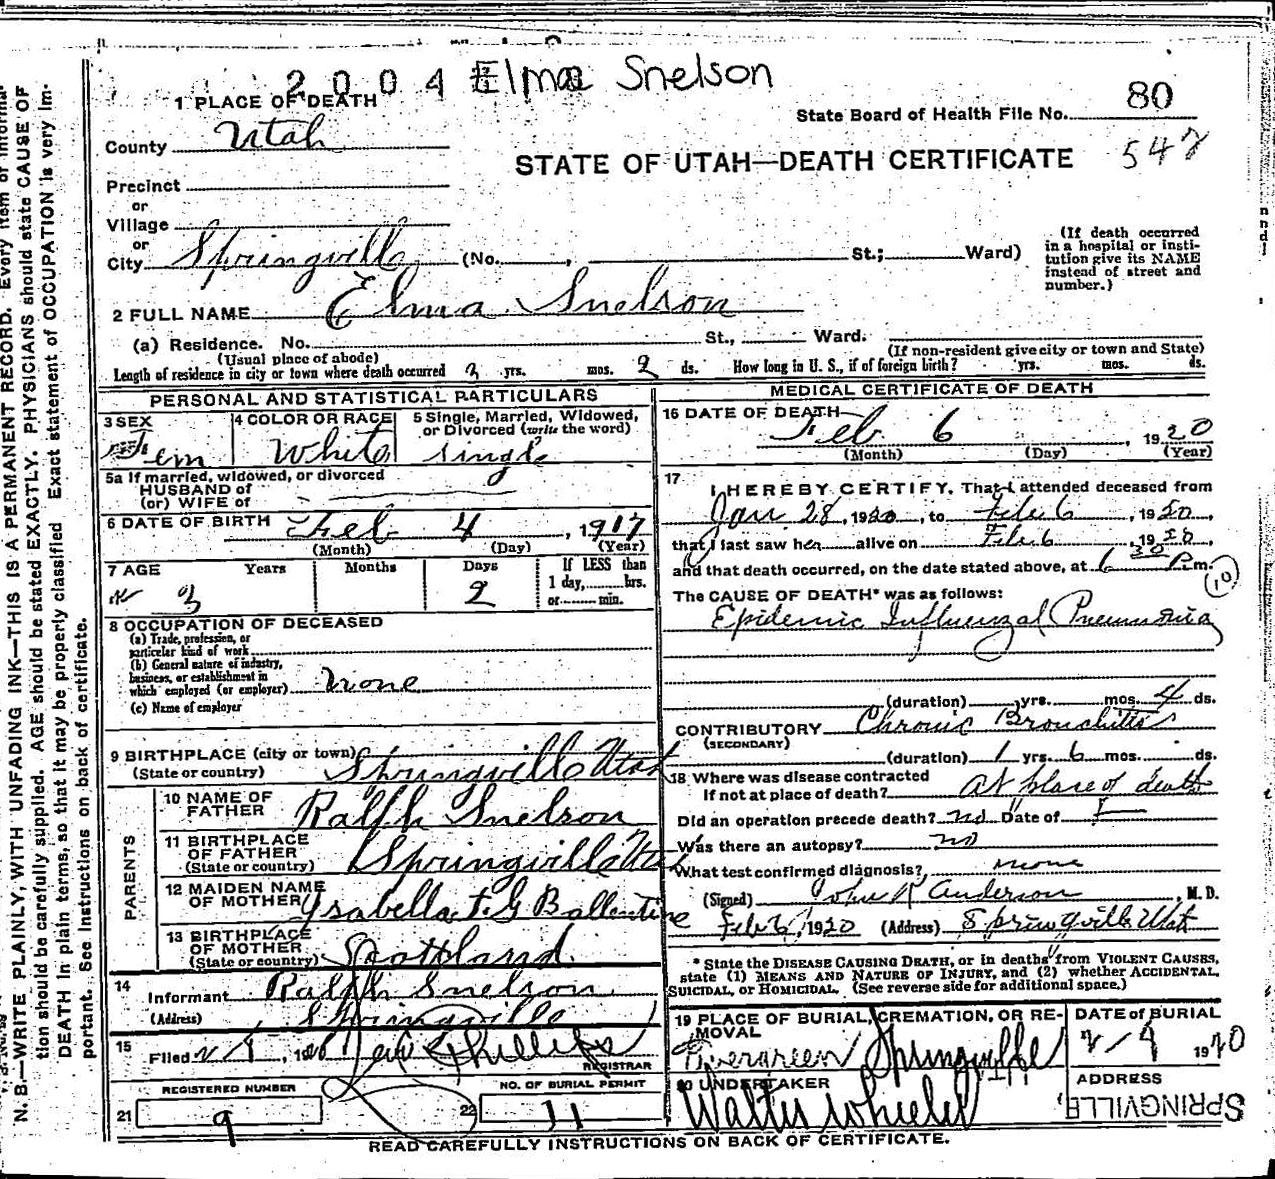 2004 Elma Snelson
1 PLACE OF DEATH
State Board of Health File No. 80
County Utah
STATE OF UTAH—DEATH CERTIFICATE 547
Precinct
or
Village
or
City Springville (No. , St.; Ward)
(If death occurred
in a hospital or insti-
tution give its NAME
instead of street and
number.)
2 FULL NAME Elma Snelson
(a) Residence. No. St., Ward.
(Usual place of abode) (If non-resident give city or town and State)
Length of residence in city or town where death occurred 3 yrs. mos. 2 ds. How long in U. S., if of foreign birth? yrs. mos. ds.
PERSONAL AND STATISTICAL PARTICULARS
3 SEX
Fem
4 COLOR OR RACE
White
5 Single, Married, Widowed,
or Divorced (write the word)
Single
5a If married, widowed, or divorced
HUSBAND of
(or) WIFE of
6 DATE OF BIRTH Feb 4, 1917
(Month) (Day) (Year)
7 AGE Years Months Days If LESS than
1 day, hrs.
or min.
3 2
8 OCCUPATION OF DECEASED
(a) Trade, profession, or
particular kind of work
(b) General nature of industry,
business, or establishment in
which employed (or employer) none
(c) Name of employer
9 BIRTHPLACE (city or town) Springville Utah
(State or country)
PARENTS
10 NAME OF
FATHER Ralph Snelson
11 BIRTHPLACE
OF FATHER Springville Utah
(State or country)
12 MAIDEN NAME
OF MOTHER Ysabella F. G Ballentine
13 BIRTHPLACE
OF MOTHER Scottland
(State or country)
14 Informant Ralph Snelson
(Address) Springville
15 Filed 2/9, 1920 Phillips
REGISTRAR
REGISTERED NUMBER NO. OF BURIAL PERMIT
21 9 22 11
MEDICAL CERTIFICATE OF DEATH
16 DATE OF DEATH
Feb 6, 1920
(Month) (Day) (Year)
17 I HEREBY CERTIFY, That I attended deceased from
Jan 28, 1920, to Feb 6, 1920,
that I last saw her alive on Feb 6, 1920,
and that death occurred, on the date stated above, at 6 30 P. m.
10
The CAUSE OF DEATH* was as follows:
Epidemic Influenzal Pneumonia
(duration) yrs. mos. 4 ds.
CONTRIBUTORY Chronic Bronchitis
(SECONDARY)
(duration) 1 yrs. 6 mos. ds.
18 Where was disease contracted
If not at place of death? At place of death
Did an operation precede death? no Date of
Was there an autopsy? no
What test confirmed diagnosis? none
(Signed) John R Anderson M. D.
Feb 6, 1920 (Address) Springville Utah
* State the DISEASE CAUSING DEATH, or in deaths from VIOLENT CAUSES,
state (1) MEANS AND NATURE OF INJURY, and (2) whether ACCIDENTAL,
SUICIDAL, or HOMICIDAL. (See reverse side for additional space.)
19 PLACE OF BURIAL, CREMATION, OR RE-
MOVAL
Evergreen Springville
DATE of BURIAL
2/9 1920
20 UNDERTAKER
Walter Wheeler
ADDRESS
SPRINGVILLE,
READ CAREFULLY INSTRUCTIONS ON BACK OF CERTIFICATE.
N. B.—WRITE PLAINLY, WITH UNFADING INK—THIS IS A PERMANENT RECORD. Every item of informa-
tion should be carefully supplied. AGE should be stated EXACTLY. PHYSICIANS should state CAUSE OF
DEATH in plain terms, so that it may be properly classified. Exact statement of OCCUPATION is very im-
portant. See instructions on back of certificate.